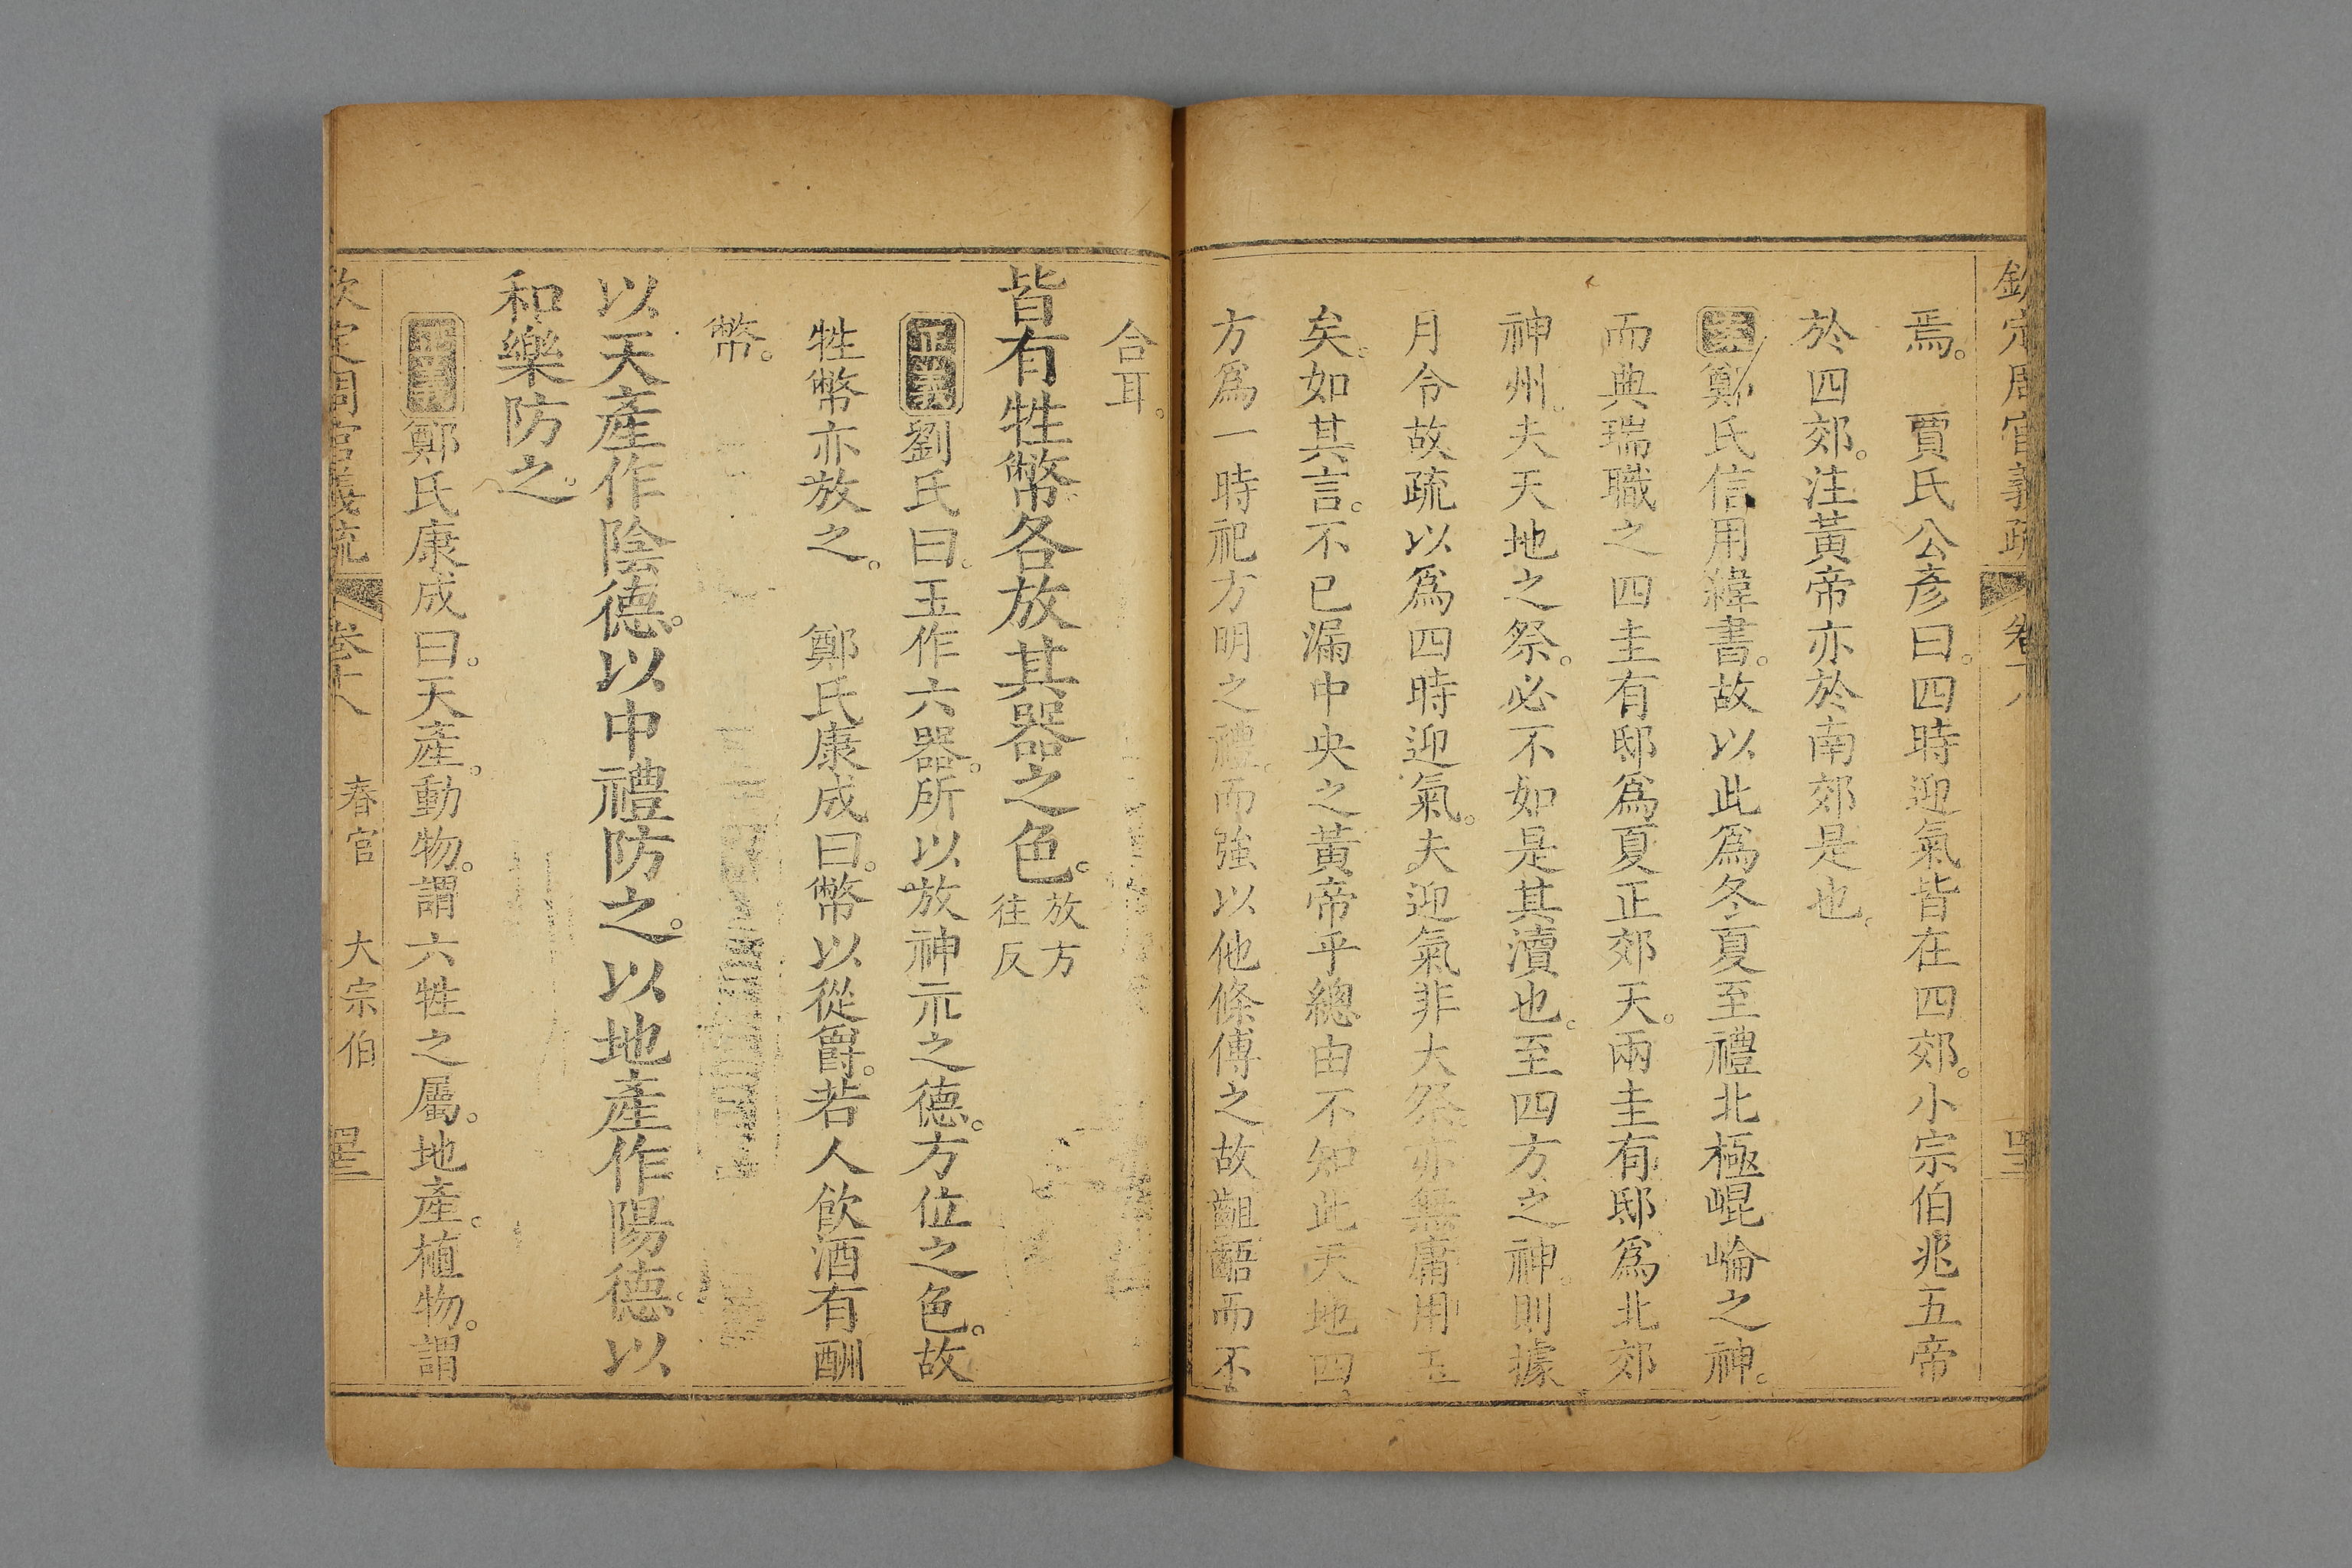 焉。　賈氏公彥曰。四時迎氣皆在四郊。小宗伯兆五帝
於四郊。注黃帝亦於南郊是也。
鄭氏信用緯書。故以此爲冬夏至禮北極崐崘之神。
而典瑞職之四圭有邸爲夏正郊天。兩圭有邸爲北郊
神州。夫天地之祭。必不如是其瀆也。至四方之神。則據
月令故疏以爲四時迎氣。夫迎氣非大祭。亦無庸用玉
矣。如其言。不已漏中央之黃帝乎總由不知此天地四
方爲一時祀方明之禮。而強以他條傅之故齟齬而不
合耳。
皆有牲幣各放其器之色。放方
往反
正義劉氏曰。玉作六器。所以放神示之德。方位之色。故
牲幣亦放之。　鄭氏康成曰。幣以從爵。若人飲酒有酬
幣。
以天產作陰德。以中禮防之。以地產作陽德。以
和樂防之。
正義鄭氏康成曰。天產。動物。謂六牲之屬。地產。植物。謂
欽定周官義疏　卷十八　春官　大宗伯